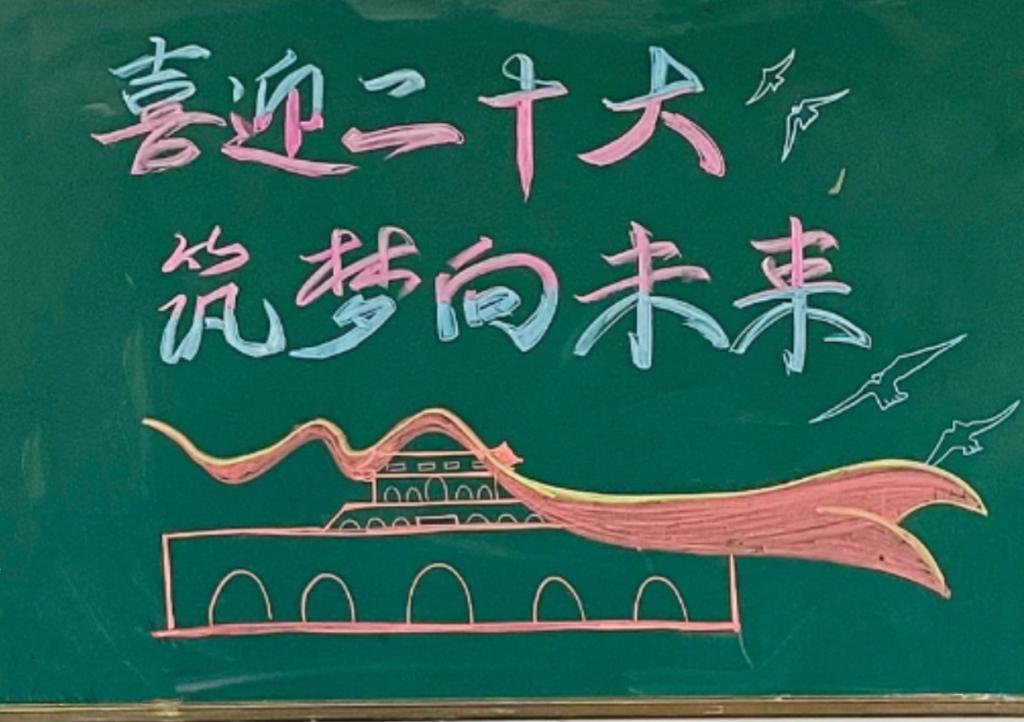 喜迎二十大
筑梦向未来